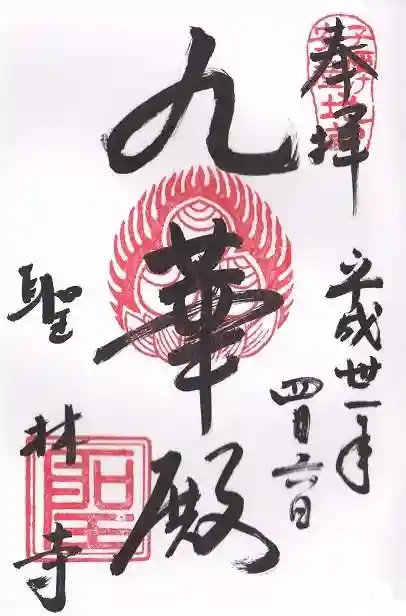 奉拝
平成丗一年
四月六日
九華殿
聖林寺